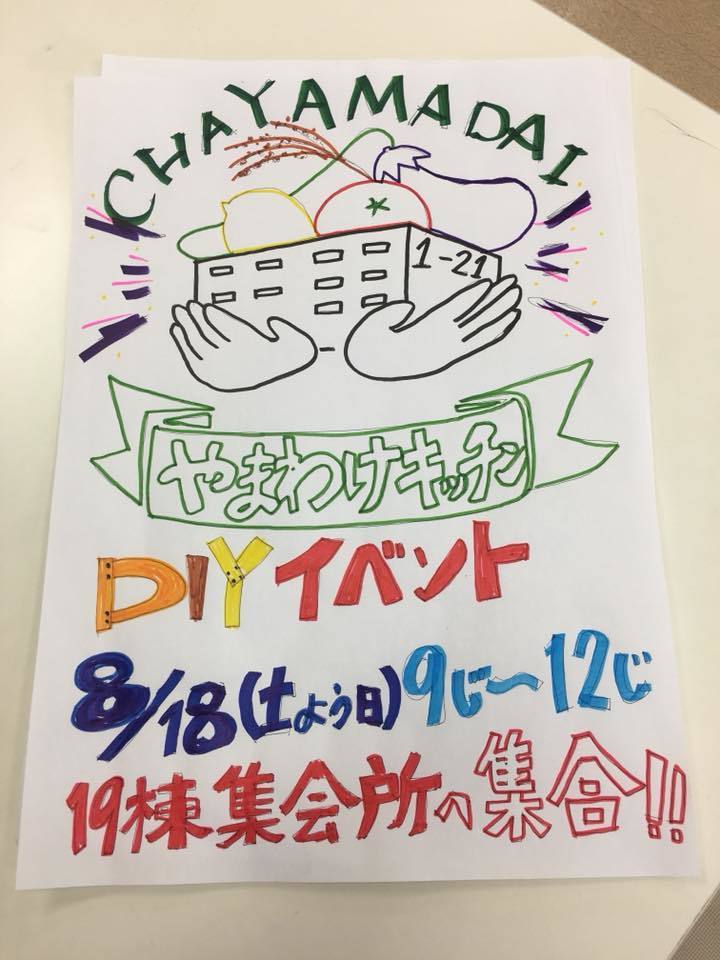 CHAYAMADAI
1-21
やまわけキッチン
DIYイベント
8/18(土よう日)9じ〜12じ
19棟集会所へ集合!!